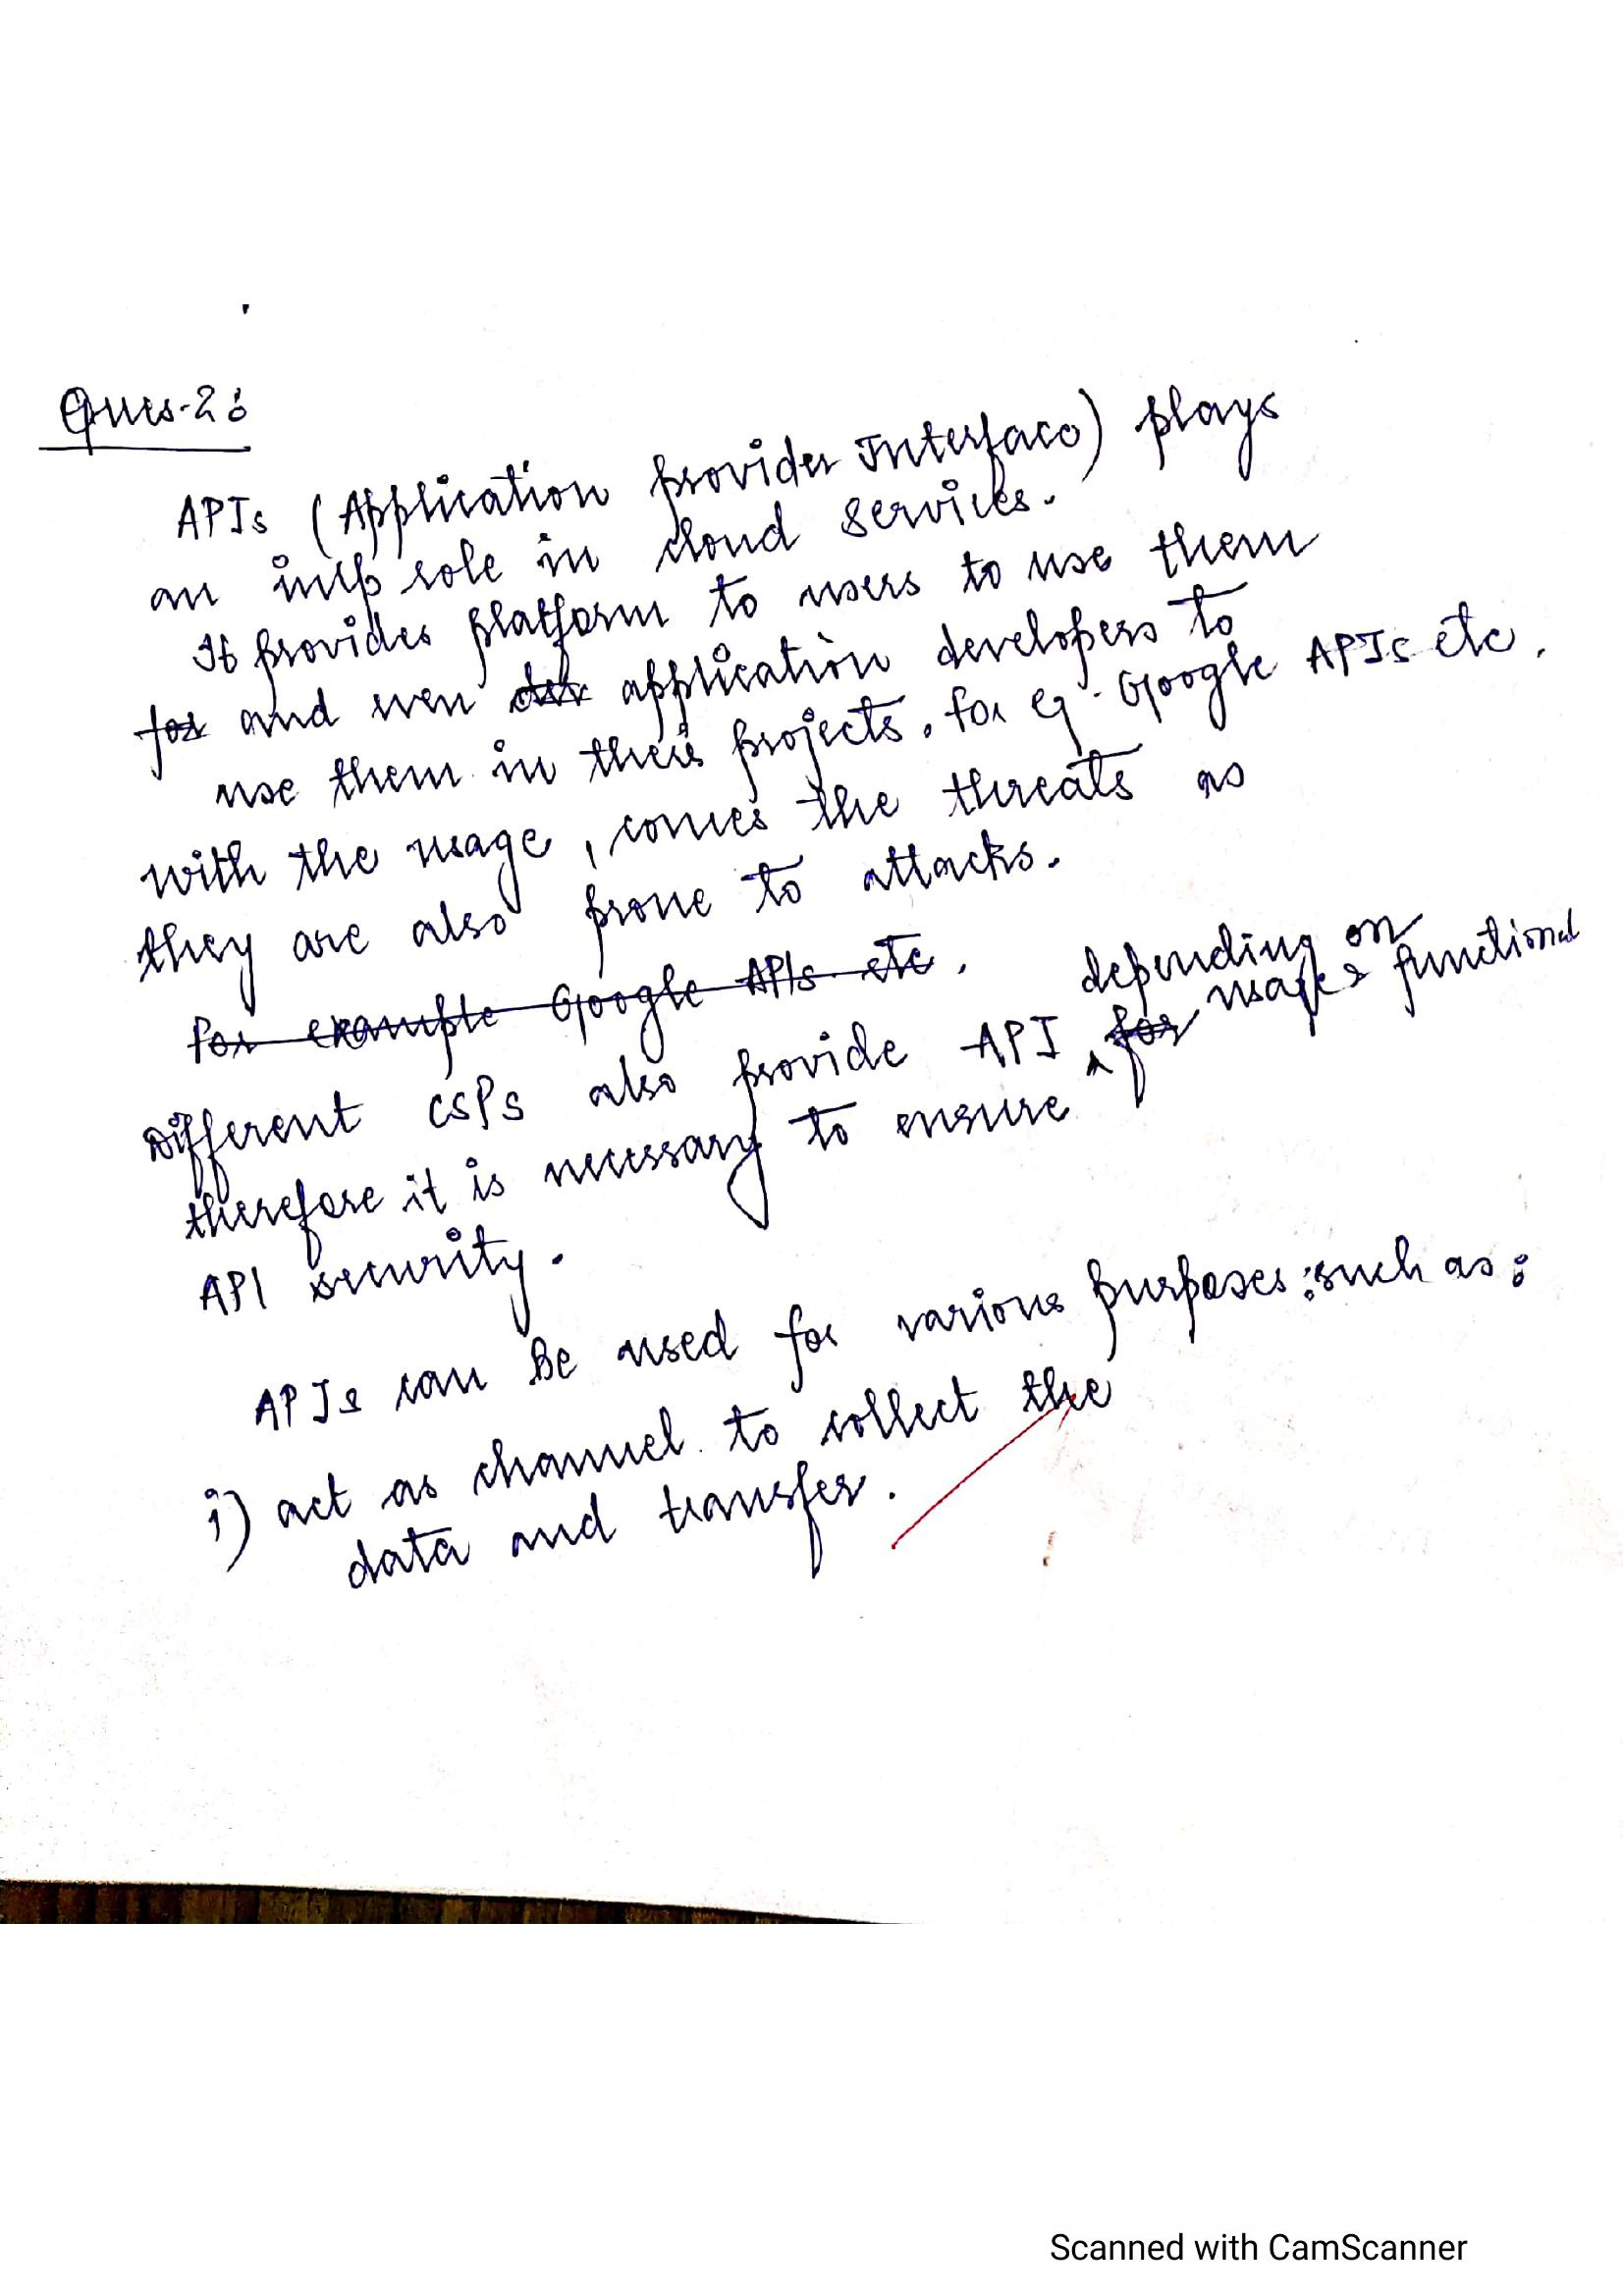 Ques-2:
APIs (Application provider Interface) plays
an imp role in cloud services.
It provides platform to users to use them
for and even application developers to
use them in their projects. for eg. Google APIs etc.
with the usage, comes the threats as
they are also prone to attacks.
For example Google APIs etc.
depending on
Different CSPs also provide API for usage & functional
therefore it is necessary to ensure
API security.
APIs can be used for various purposes: such as:
i) act as channel to collect the
data and transfer.
Scanned with CamScanner